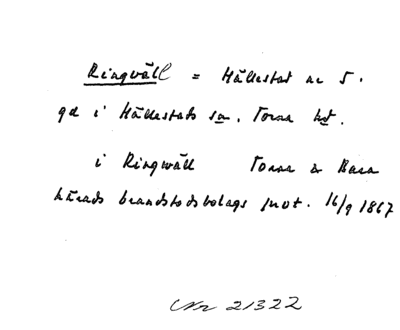 Ringväll = Hällestad nr 5.
gd i Hällestads sn. Torna hd.
i Ringwäll Torna & Bara
härads brandstodsbolags prot. 16/9 1867
Nr 21322